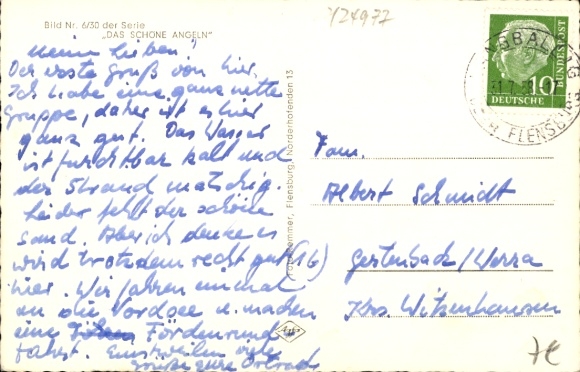 Bild Nr. 6/30 der Serie
„DAS SCHÖNE ANGELN“
Y24977
Meine Lieben!
Der erste Gruß von hier.
Ich habe eine ganz nette
Gruppe, daher ist es hier
ganz gut. Das Wasser
ist furchtbar kalt und
der Strand matschig.
Leider fehlt der schöne
Sand. Aber ich denke es
wird trotzdem recht gut
hier. Wir fahren einmal
an die Nordsee u. machen
eine
fahrt. Einstweilen viele
Grüße eure
(16)
Flensburg, Norderhofenden 13
DEUTSCHE
BUNDESPOST
10
FLENSBURG
Fam.
Albert Schmidt
Gertenbach/Werra
Krs Witzenhausen
7€